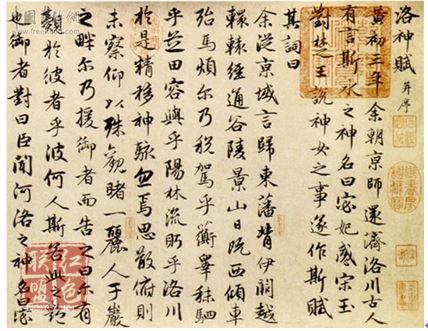 洛神賦 并序
黃初三年余朝京師還濟洛川古人
有言斯水之神名曰宓妃感宋玉
對楚王說神女之事遂作斯賦
其詞曰
余從京域言歸東藩背伊闕越
轘轅經通谷陵景山日既西傾車
殆馬煩尔乃稅駕乎蘅皋秣駟
乎芝田容與乎陽林流眄乎洛川
於是精移神駭忽焉思散俯則
未察仰以殊觀睹一麗人于巖
之畔尔乃援御者而告之曰尔有
覿於彼者乎彼何人斯若此之艷
也御者對曰臣聞河洛之神名曰宓
红色
联盟